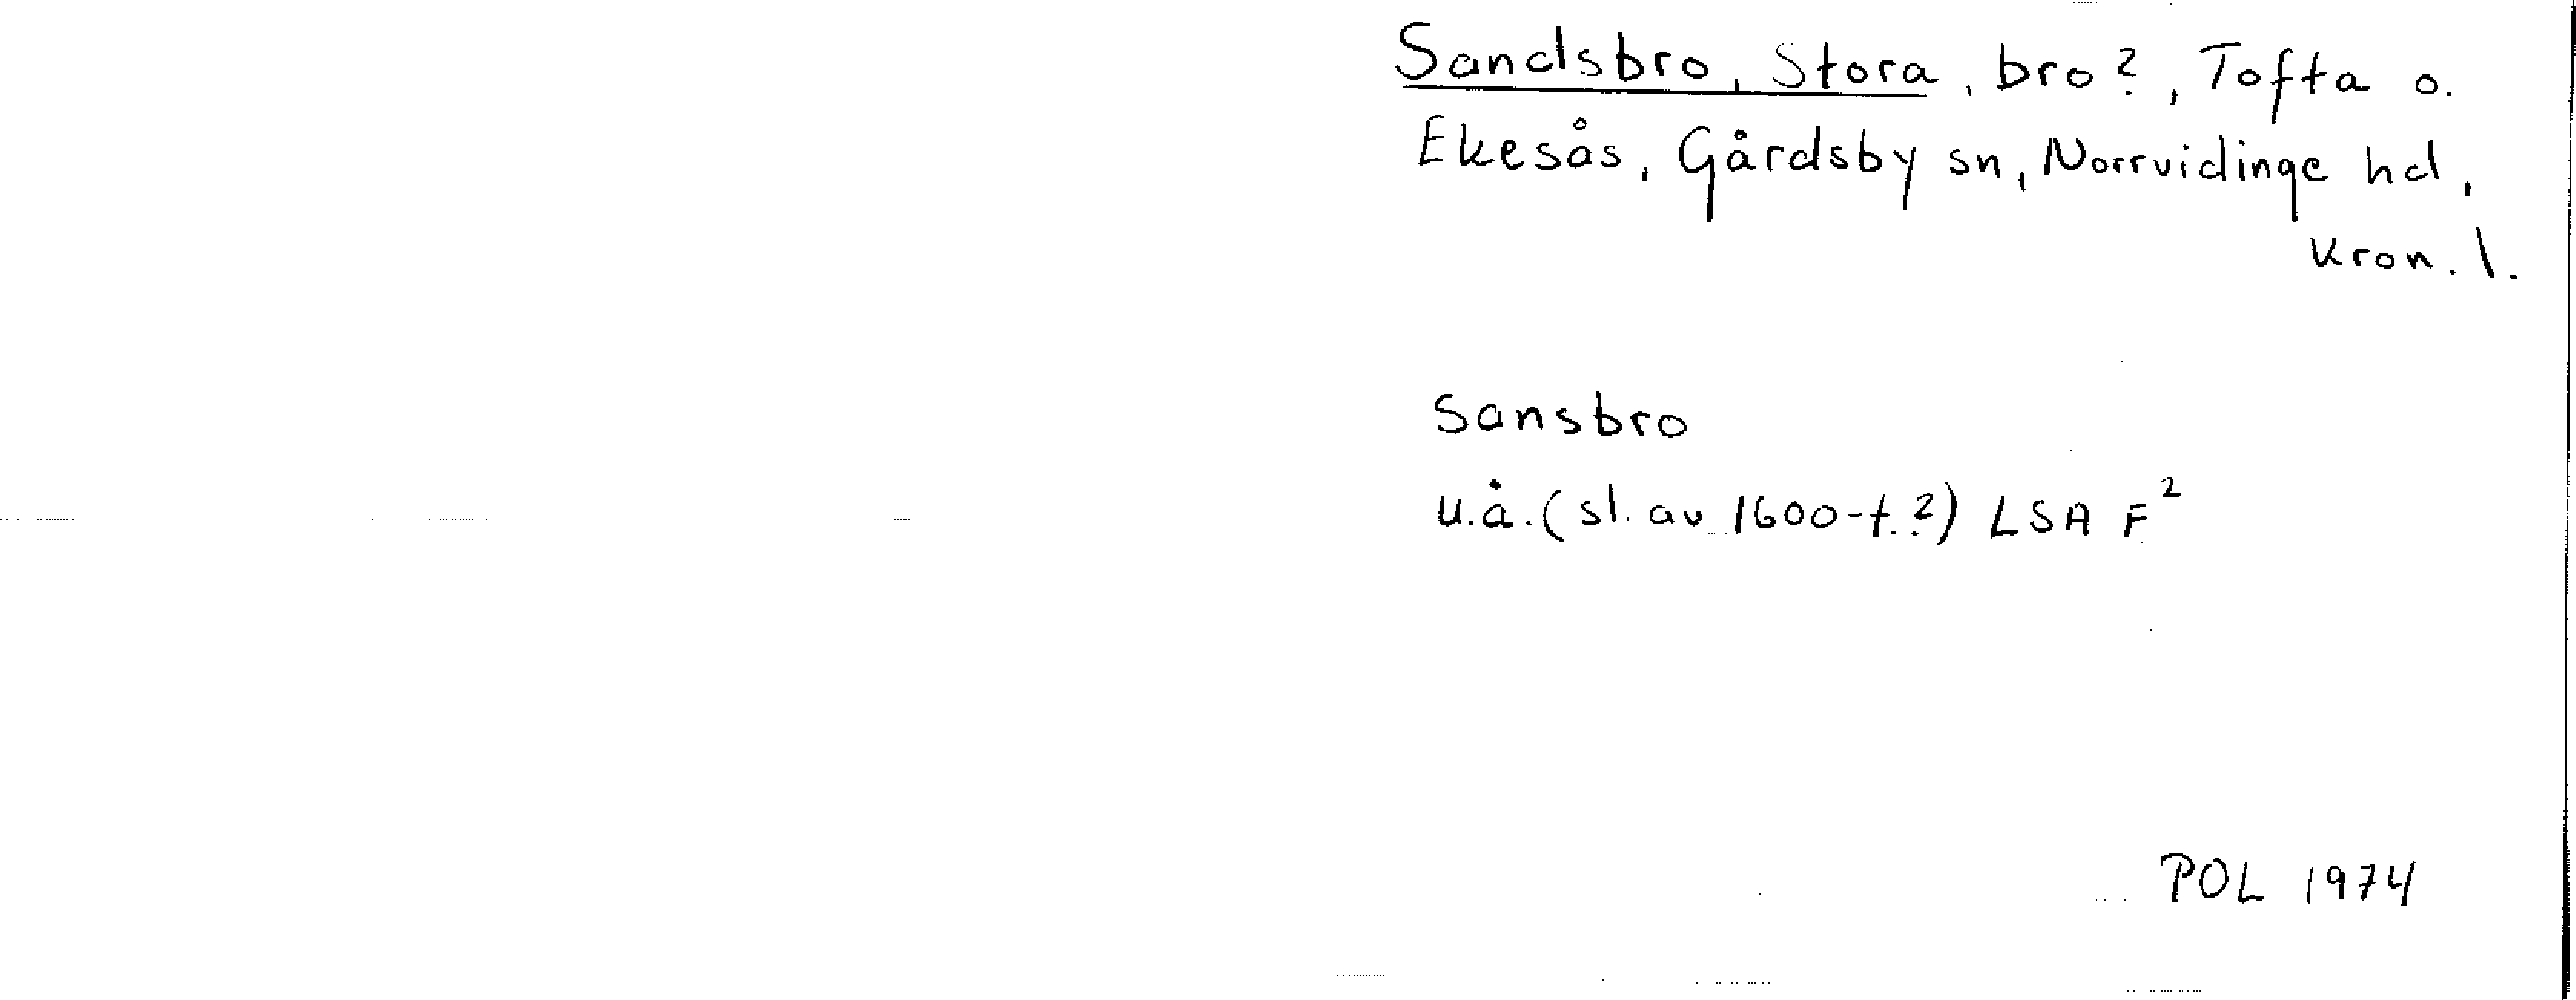 Sandsbro, Stora, bro?, Tofta o.
Ekesås, Gårdsby sn, Norrvidinge hd,
Kron. l.
Sansbro
u.å. (sl. av 1600-t.?) LSA F²
POL 1974